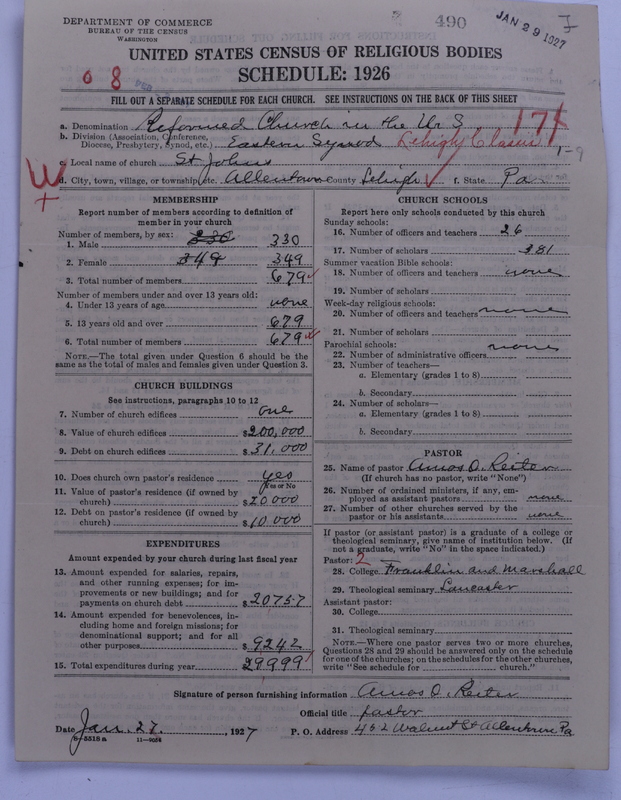 DEPARTMENT OF COMMERCE
BUREAU OF THE CENSUS
WASHINGTON
490
JAN 29 1927
UNITED STATES CENSUS OF RELIGIOUS BODIES
SCHEDULE: 1926
0 8
FILL OUT A SEPARATE SCHEDULE FOR EACH CHURCH. SEE INSTRUCTIONS ON THE BACK OF THIS SHEET
a. Denomination Reformed Church in the U.S
b. Division (Association, Conference,
Diocese, Presbytery, Synod, etc.) Eastern Synod Lehigh Classis
c. Local name of church St Johns
d. City, town, village, or township, etc. Allentown County Lehigh f. State Pa
MEMBERSHIP
Report number of members according to definition of
member in your church
Number of members, by sex:
1. Male 330 330
2. Female 349 349
3. Total number of members 679
Number of members under and over 13 years old:
4. Under 13 years of age none
5. 13 years old and over 679
6. Total number of members 679
NOTE.—The total given under Question 6 should be
same as the total of males and females given under Question 3.
CHURCH BUILDINGS
See instructions, paragraphs 10 to 12
7. Number of church edifices one
8. Value of church edifices $200,000
9. Debt on church edifices $31,000
10. Does church own pastor's residence yes
Yes or No
11. Value of pastor's residence (if owned by
church) $20000
12. Debt on pastor's residence (if owned by
church) $10.000
EXPENDITURES
Amount expended by your church during last fiscal year
13. Amount expended for salaries, repairs,
and other running expenses; for im-
provements or new buildings; and for
payments on church debt $20757
14. Amount expended for benevolences, in-
cluding home and foreign missions; for
denominational support; and for all
other purposes $9242
15. Total expenditures during year 29999
CHURCH SCHOOLS
Report here only schools conducted by this church
Sunday schools:
16. Number of officers and teachers 26
17. Number of scholars 381
Summer vacation Bible schools:
18. Number of officers and teachers none
19. Number of scholars
Week-day religious schools:
20. Number of officers and teachers none
21. Number of scholars
Parochial schools: none
22. Number of administrative officers
23. Number of teachers—
a. Elementary (grades 1 to 8)
b. Secondary
24. Number of scholars—
a. Elementary (grades 1 to 8)
b. Secondary
PASTOR
25. Name of pastor Amos O. Reiter
(If church has no pastor, write "None")
26. Number of ordained ministers, if any, em-
ployed as assistant pastors none
27. Number of other churches served by the
pastor or his assistants none
If pastor (or assistant pastor) is a graduate of a college or
theological seminary, give name of institution below. (If
not a graduate, write "No" in the space indicated.)
Pastor: 2
28. College Franklin and Marshall
29. Theological seminary Lancaster
Assistant pastor:
30. College
31. Theological seminary
NOTE.—Where one pastor serves two or more churches,
Questions 28 and 29 should be answered only on the schedule
for one of the churches; on the schedules for the other churches,
write "See schedule for church."
Signature of person furnishing information Amos O. Reiter
Official title pastor
Date Jan. 27. , 1927 P. O. Address 452 Walnut St Allentown Pa
8—5518 a 11—9024